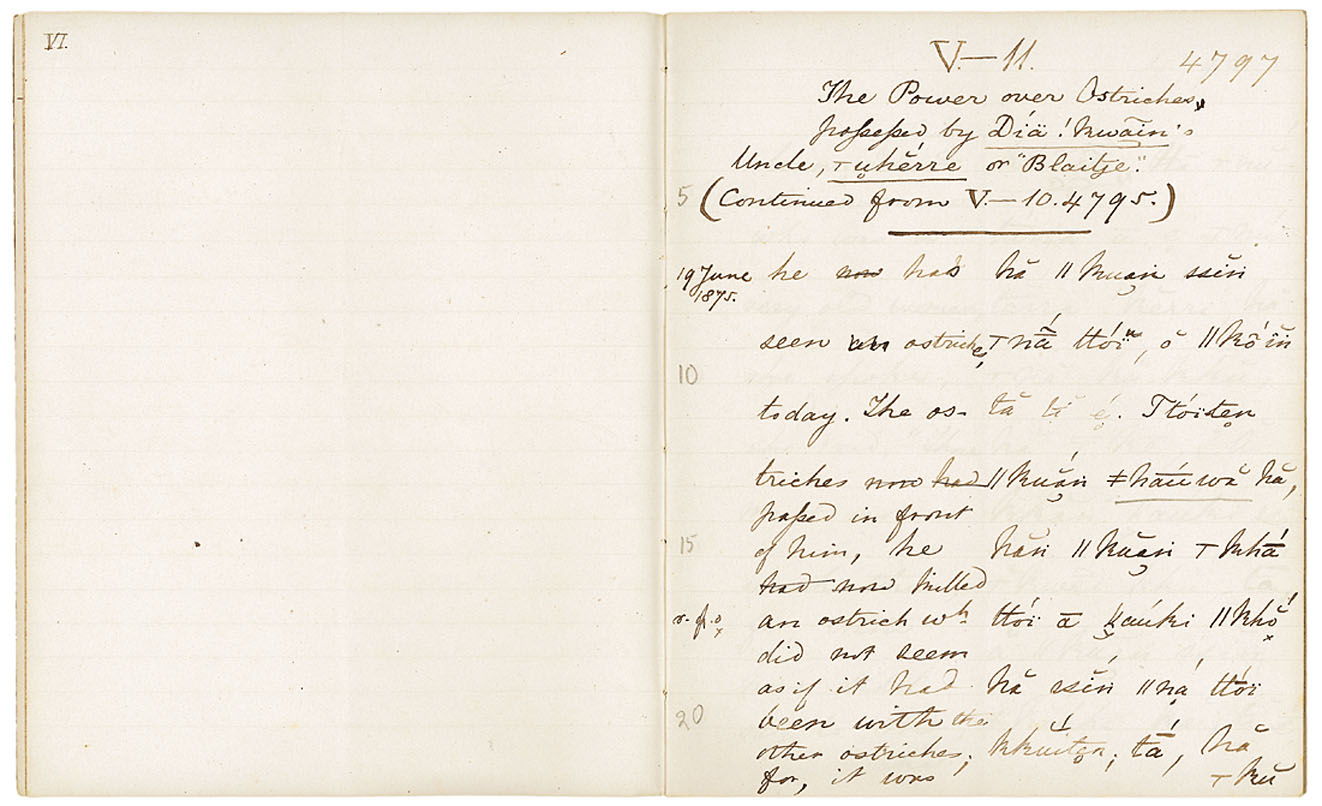 VI.
V.—11. 4797
The Power over Ostriches,
possessed by Díä!kwāin's
Uncle, ⊤ụhĕrre or "Blaitje".
5 (Continued from V.—10.4795.)
19 June he now has hă ǁkuạn ssĕn
1875.
seen an ostriches, ttóï , ŏ
10
today. The os- tă é. Ttóïtẹn
triches now had ǁkuặn ≠hāúwă hă,
passed in front
15 of him, he hăn ǁkuặn ⊤khā́
had now killed
an ostrich wh. ttóï ā ǁkhŏ́
did not seem
as if it had hă ssĕn ǁná ttóï
20 been with the
other ostriches; kkúïtẹn; tā́, hă
for, it was ⊤kŭ